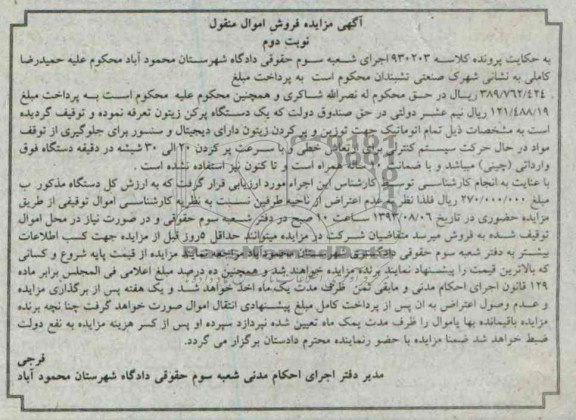 آگهی مزایده فروش اموال منقول
نوبت دوم
به حکایت پرونده کلاسه ۹۳۰۲۰۳ اجرای شعبه سوم حقوقی دادگاه شهرستان محمود آباد محکوم علیه حمیدرضا
کاملی به نشانی شهرک صنعتی تشبندان محکوم است به پرداخت مبلغ
۳۸۹/۷۶۲/۴۲۴ ریال در حق محکوم له نصرالله شاکری و همچنین محکوم علیه محکوم است به پرداخت مبلغ
۱۲۱/۴۸۸/۱۹ ریال نیم عشر دولتی در حق صندوق دولت که یک دستگاه پرکن زیتون تعرفه نموده و توقیف گردیده
است به مشخصات ذیل تمام اتوماتیک جهت توزین و پر کردن زیتون دارای دیجیتال و سنسور برای جلوگیری از توقف
مواد در حال حرکت سیستم کنترل خطی و با سرعت پر کردن ۲۰ الی ۳۰ شیشه در دقیقه دستگاه فوق
وارداتی (چینی) میباشد و با ضمانت همراه است و تا کنون نیز استفاده نشده است .
با عنایت به انجام کارشناسی توسط کارشناس این اجراء مورد ارزیابی قرار گرفت که به ارزش کل دستگاه مذکور ب
مبلغ ۲۷۰/۰۰۰/۰۰۰ ریال فلذا نظر به عدم اعتراض از ناحیه طرفین نسبت به نظریه کارشناسی اموال توقیفی از طریق
مزایده حضوری در تاریخ ۱۳۹۳/۰۸/۰۶ ساعت ۱۰ صبح در دفتر شعبه سوم حقوقی و در صورت نیاز در محل اموال
توقیف شده به فروش میرسد متقاضیان شرکت در مزایده میتوانند حداقل ۵روز قبل از مزایده جهت کسب اطلاعات
بیشتر به دفتر شعبه سوم حقوقی دادگستری شهرستان محمودآباد مراجعه نمایند مزایده از قیمت پایه شروع و کسانی
که بالاترین قیمت را پیشنهاد نمایند برنده مزایده خواهند شد و همچنین ده درصد مبلغ اعلامی فی المجلس برابر ماده
۱۲۹ قانون اجرای احکام مدنی و مابقی ثمن ظرف مدت یک ماه اخذ خواهد شد و یک هفته پس از برگذاری مزایده
و عدم وصول اعتراض به ان پس از پرداخت کامل مبلغ پیشنهادی انتقال اموال صورت خواهد گرفت چنا نچه برنده
مزایده باقیمانده بها یاموال را ظرف مدت یمک ماه تعیین شده نپردازد سپرده او پس از کسر هزینه مزایده به نفع دولت
ضبط خواهد شد ضمنا مزایده با حضور نماینده محترم دادستان برگزار می گردد.
فرجی
مدیر دفتر اجرای احکام مدنی شعبه سوم حقوقی دادگاه شهرستان محمود آباد